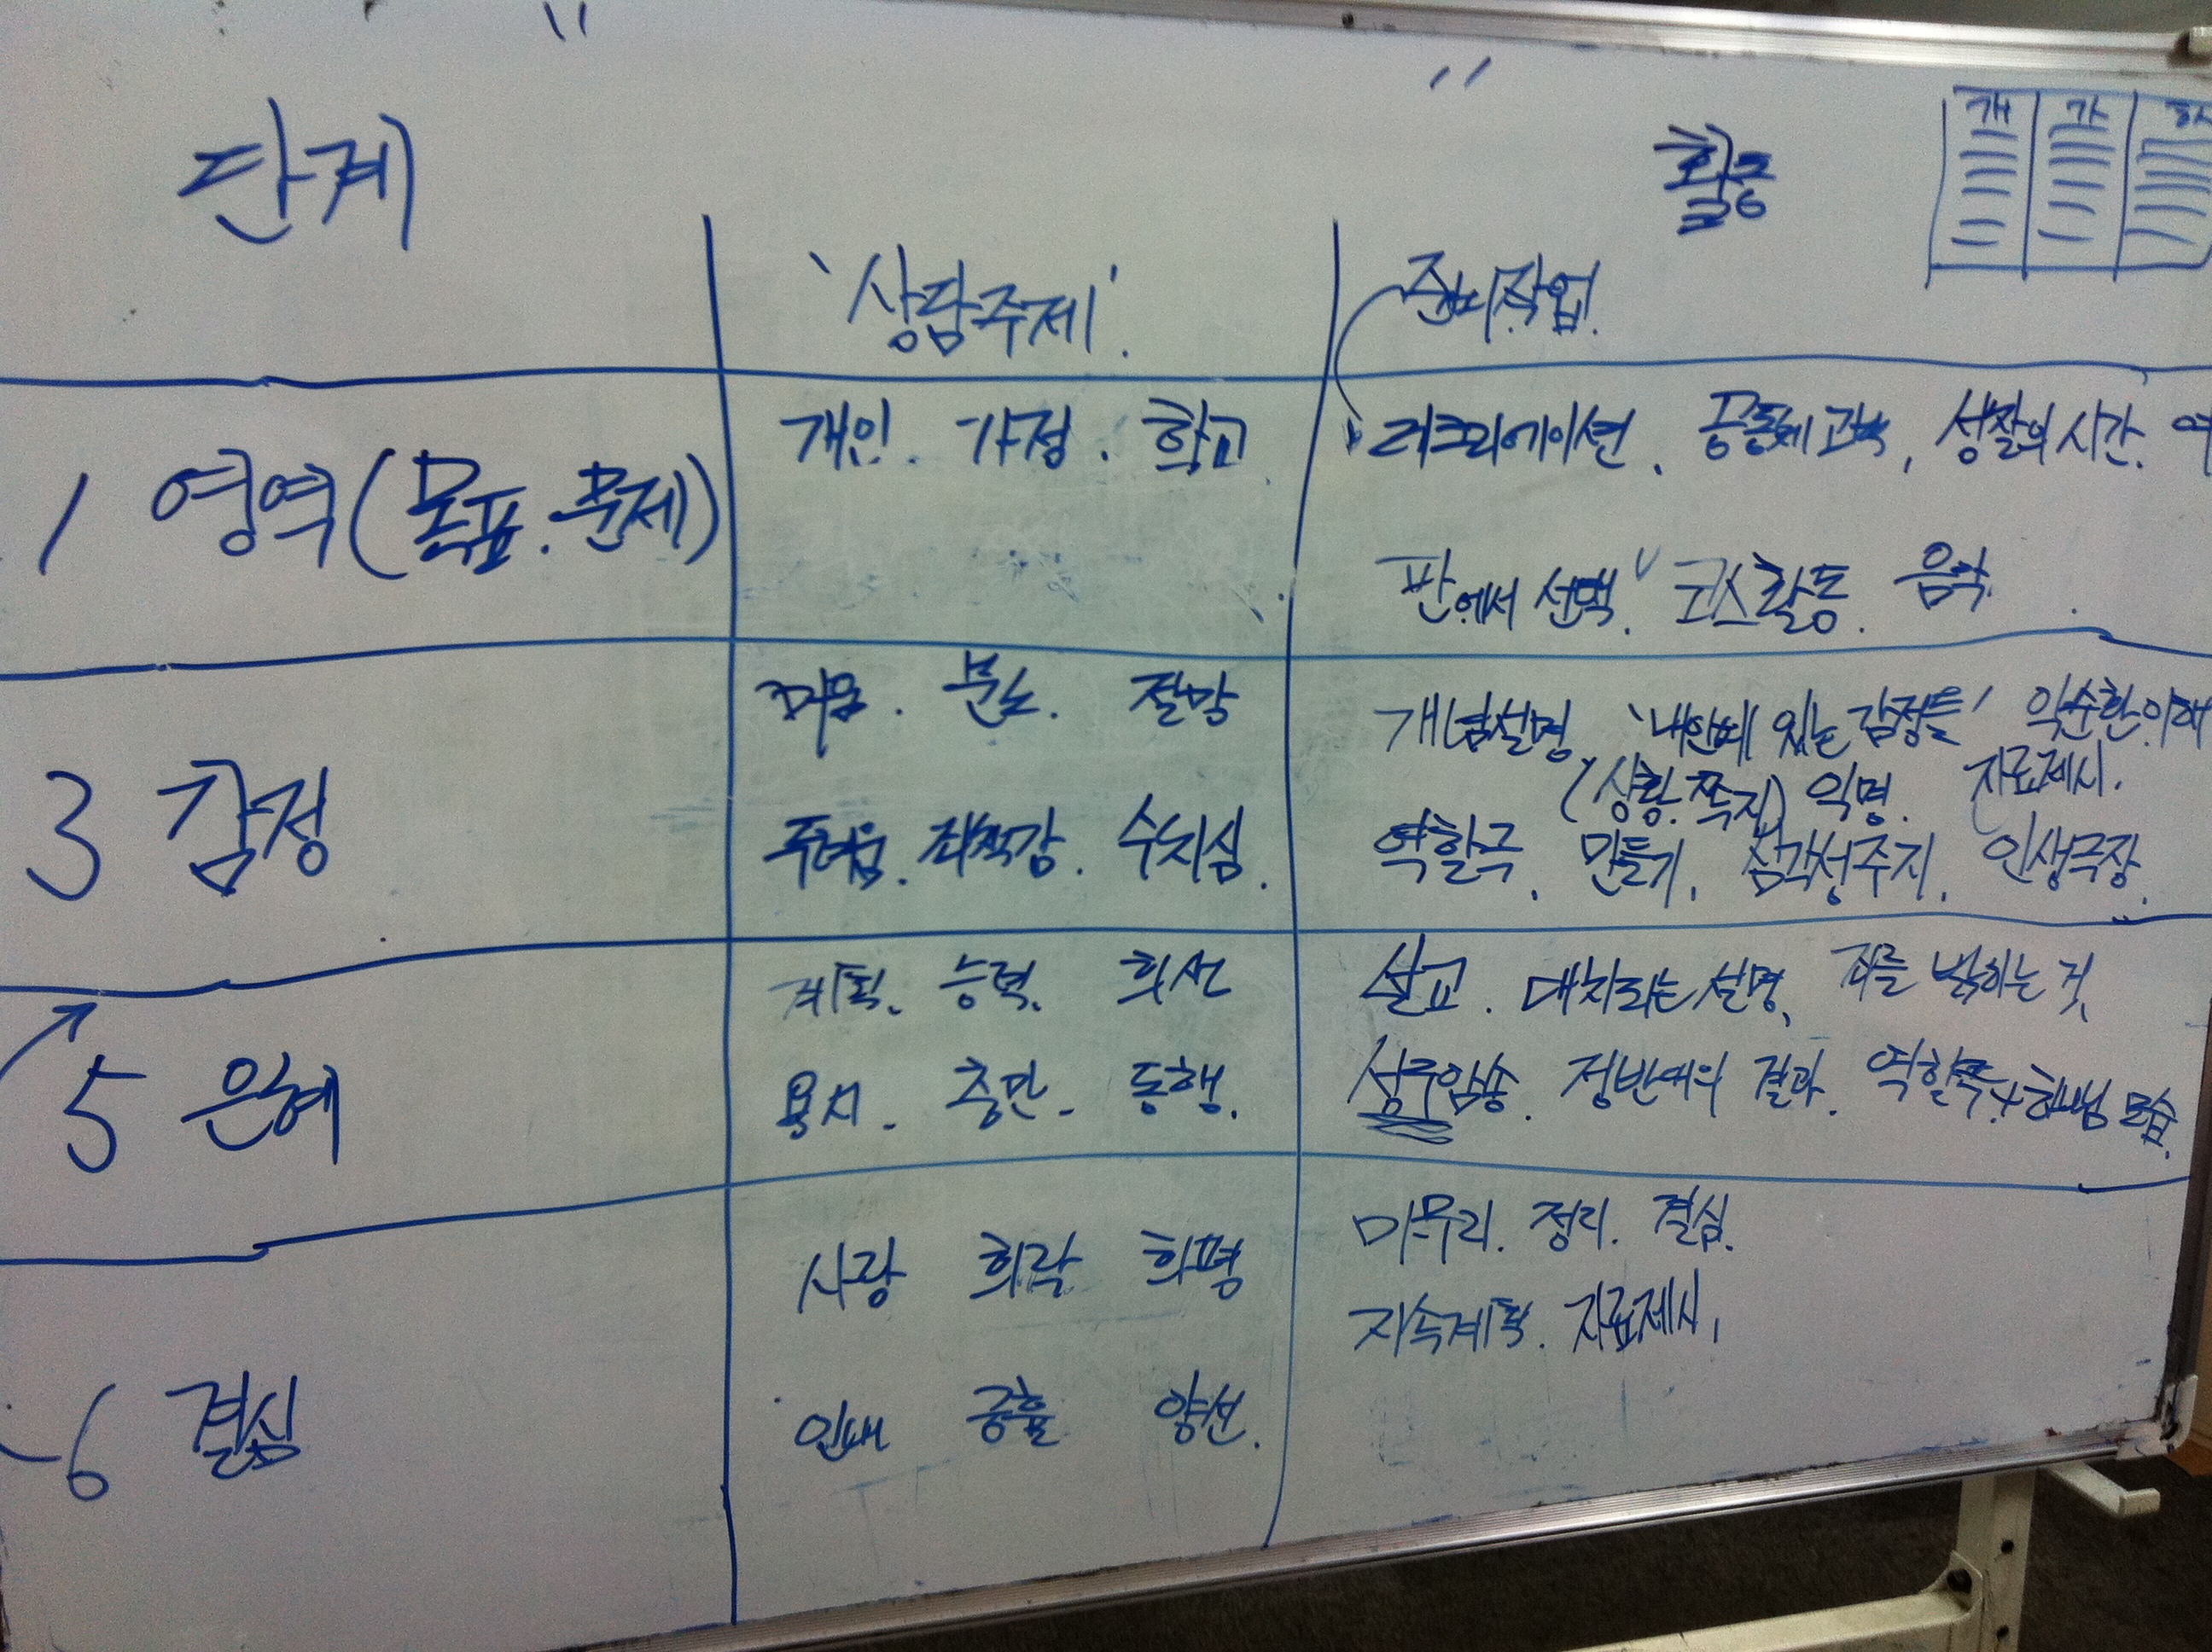 " "
단계
활동
개 가 학
'상담주제'.
준비작업.
1 영역(목표.문제)
개인. 가정. 학교.
레크리에이션. 공동체교육, 성찰의 시간. 여
판에서 선택. 코스활동. 음악.
3 감정
미움. 분노. 절망
두려움. 죄책감. 수치심.
개념설명, '내안에 있는 감정들' 익숙한이해
(상황.쪽지) 익명. 자료제시.
역할극. 만들기. 심각성주지. 인생극장.
5 은혜
계획. 능력. 희생
용서. 충만. 동행.
설교. 대치되는 설명, 죄를 밝히는 것,
성구암송. 정반대의 결과. 역할극+하나님 모습.
6 결심
사랑 희락 화평
인내 긍휼 양선.
마무리. 정리. 결심.
지속계획. 자료제시,